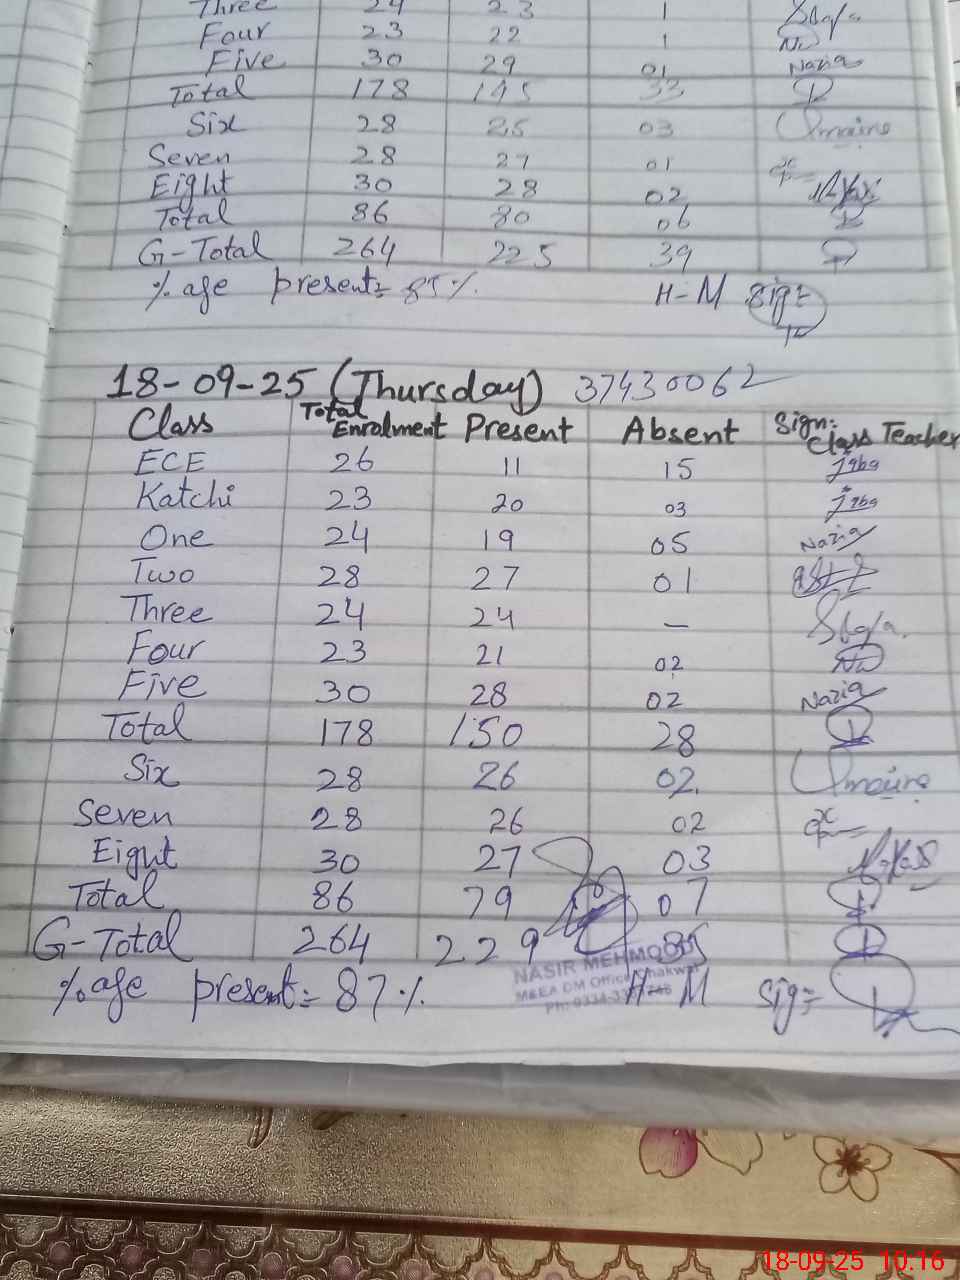 Three 24 23 1
Four 23 22 1
Five 30 29 01 Nazia
Total 178 145 33
Six 28 25 03 Umaima
Seven 28 27 01
Eight 30 28 02
Total 86 80 06
G-Total 264 225 39
%age present = 85 %. H-M Sig=
18-09-25 (Thursday) 37430062
Class Total Enrolment Present Absent Sign: Class Teacher
ECE 26 11 15 Iqba
Katchi 23 20 03 Iqba
One 24 19 05 Nazia
Two 28 27 01
Three 24 24 —
Four 23 21 02
Five 30 28 02 Nazia
Total 178 150 28
Six 28 26 02 Umaima
Seven 28 26 02
Eight 30 27 03
Total 86 79 07
G-Total 264 229 35
NASIR MEHMOOD
M&EA DM Office Chakwal
%age present = 87 %. H-M Sig=
18-09-25 10.16